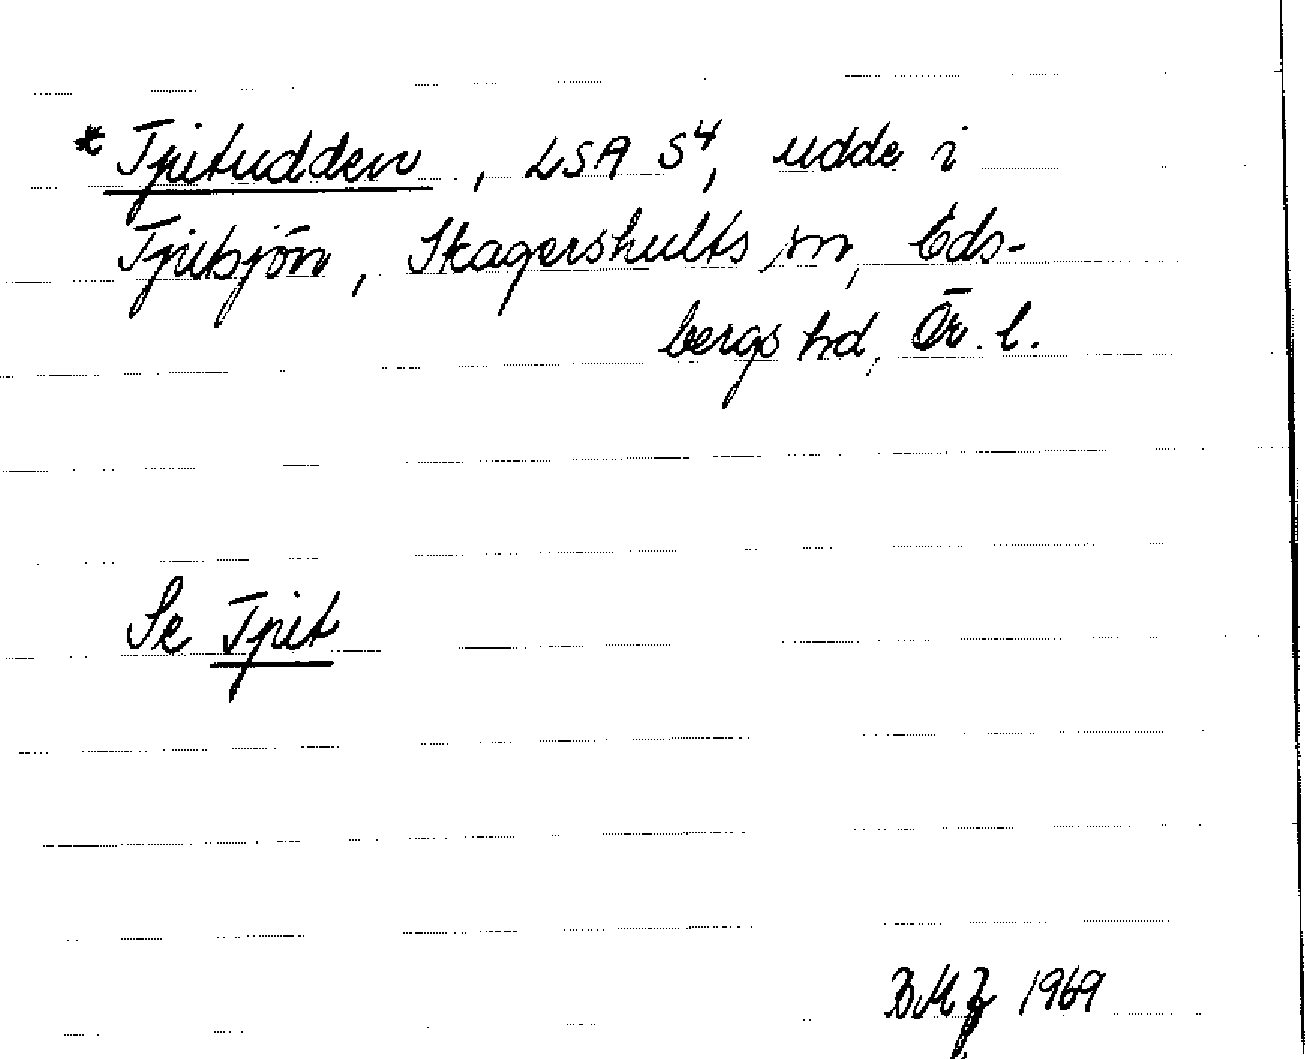 *Tjitudden, LSA S4, udde i
Tjitsjön, Skagershults sn, Eds-
bergs hd, Ör. l.
Se Tjit
1969